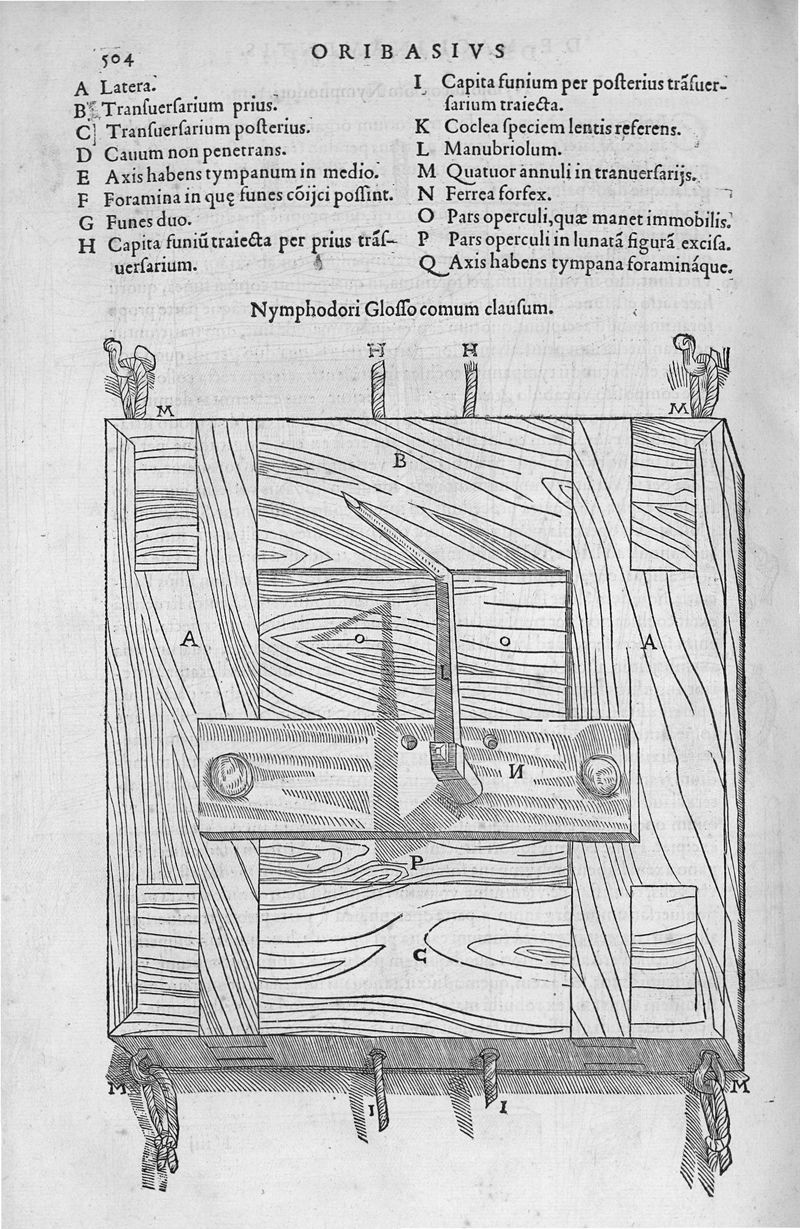 504
ORIBASIVS
A Latera.
B Tranſuerſarium prius.
C Tranſuerſarium poſterius.
D Cauum non penetrans.
E Axis habens tympanum in medio.
F Foramina in quę funes cõijci poſſint.
G Funes duo.
H Capita funiũ traiecta per prius trãſ-
uerſarium.
I Capita funium per poſterius trãſuer-
ſarium traiecta.
K Coclea ſpeciem lentis referens.
L Manubriolum.
M Quatuor annuli in tranuerſarijs.
N Ferrea forfex.
O Pars operculi, quæ manet immobilis.
P Pars operculi in lunatã figurã exciſa.
Q Axis habens tympana foramináque.
Nymphodori Gloſſocomum clauſum.
H H
M M
B
A O O A
L
N
P
C
M M
I I